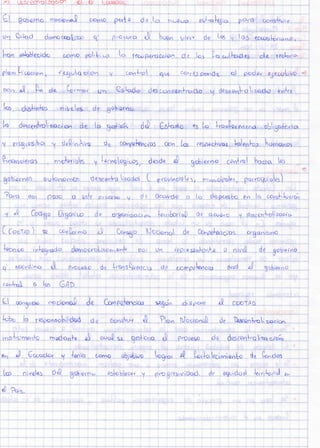 El gobierno nacional como parte de la nueva estrategia para construir
un Estado democrático q' procura el buen vivir de los y las ecuatorianos,
han establecido como política la recuperación de las facultades de rectoría
planificación, regulación y control que corresponde al poder ejecutivo
con el fin de formar un Estado desconcentrado y descentralizado entre
los distintos niveles de gobierno.
La descentralización de la gestión del Estado es la transferencia obligatoria
y progresiva y definitiva de competencias con los respectivos talentos humanos
financieros materiales y tecnológicos, desde el gobierno central hacia los
gobiernos autónomos descentralizados ( provinciales, municipales, parroquiales)
Para dar paso a este proceso y de acuerdo a lo dispuesto en la constitución
y el Código Orgánico de organización territorial de
(COOTAD) se conforma el Consejo Nacional de Competencias organismo
técnico integrado democráticamente por un representante a nivel de gobierno
q' coordina el proceso de transferencia de competencia desde el gobierno
central a los GAD.
El consejo nacional de Competencias según dispone el COOTAD
tubo la responsabilidad de construir el Plan Nacional de Descentralización
instrumento mediante el cual se gestiona el proceso de descentralización
en el Ecuador y tenía como objetivo lograr el fortalecimiento de
los niveles del gobierno establecer y progresividad de equidad territorial en
el País.